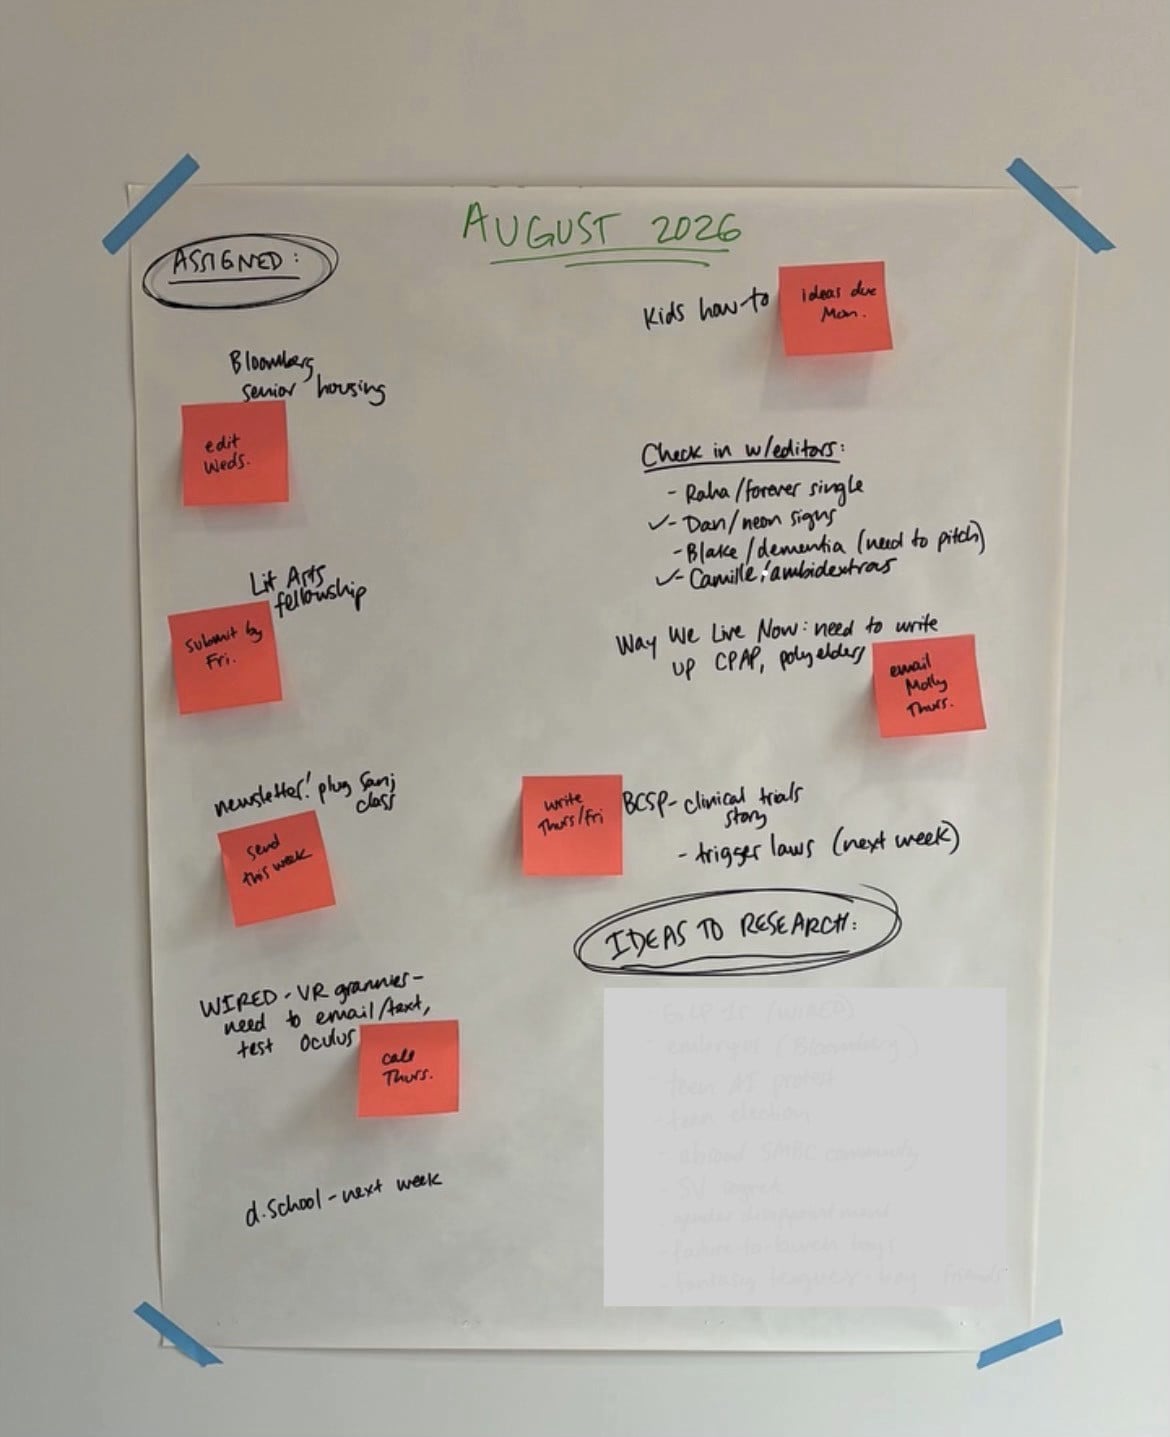 AUGUST 2026
ASSIGNED:
Bloomberg
senior housing
edit
Weds.
Lit Arts
fellowship
submit by
Fri.
newsletter! plug Sanj
class
send
this week
WIRED - VR grannies -
need to email/text,
test Oculus
call
Thurs.
d.school - next week
Kids how-to
ideas due
Mon.
Check in w/editors:
- Raha/forever single
✓- Dan/neon signs
- Blake/dementia (need to pitch)
✓- Camille/ambidextrous
Way We Live Now: need to write
up CPAP, polyelders
email
Molly
Thurs.
write
Thurs/Fri
BCSP- clinical trials
story
- trigger laws (next week)
IDEAS TO RESEARCH:
embryos (Bloomberg)
teen AI protest
- teen election